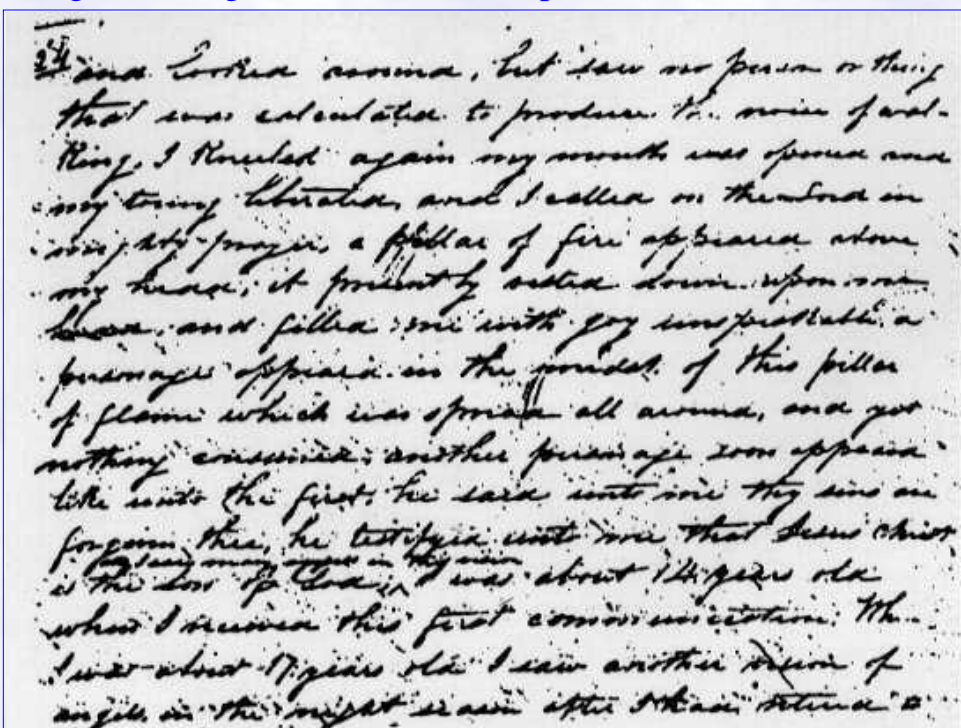 24 and looked around, but saw no person or thing
that was calculated to produce the noise of wal-
king. I kneeled again my mouth was opened and
my toung liberated, and I called on the Lord in
mighty prayer, a pillar of fire appeared above
my head, it presently rested down upon me
head, and filled me with joy unspeakable, a
personage appeard in the midst of this pillar
of flame which was spread all around, and yet
nothing consumed, another personage soon appeard
like unto the first, he said unto me thy sins are
forgiven thee, he testifyed unto me that Jesus Christ
is the son of God; I was about 14 years old
when I received this first communication; Wh
I was about 17 years old I saw another vision of
angels in the night season after I had retired